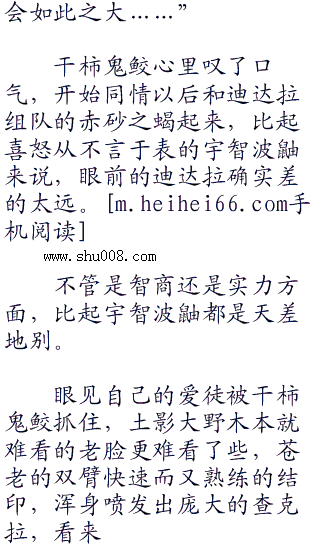 会如此之大……”
干柿鬼鲛心里叹了口
气，开始同情以后和迪达拉
组队的赤砂之蝎起来，比起
喜怒从不言于表的宇智波鼬
来说，眼前的迪达拉确实差
的太远。[m.heihei66.com手
机阅读]
www.shu008.com
不管是智商还是实力方
面，比起宇智波鼬都是天差
地别。
眼见自己的爱徒被干柿
鬼鲛抓住，土影大野木本就
难看的老脸更难看了些，苍
老的双臂快速而又熟练的结
印，浑身喷发出庞大的查克
拉，看来